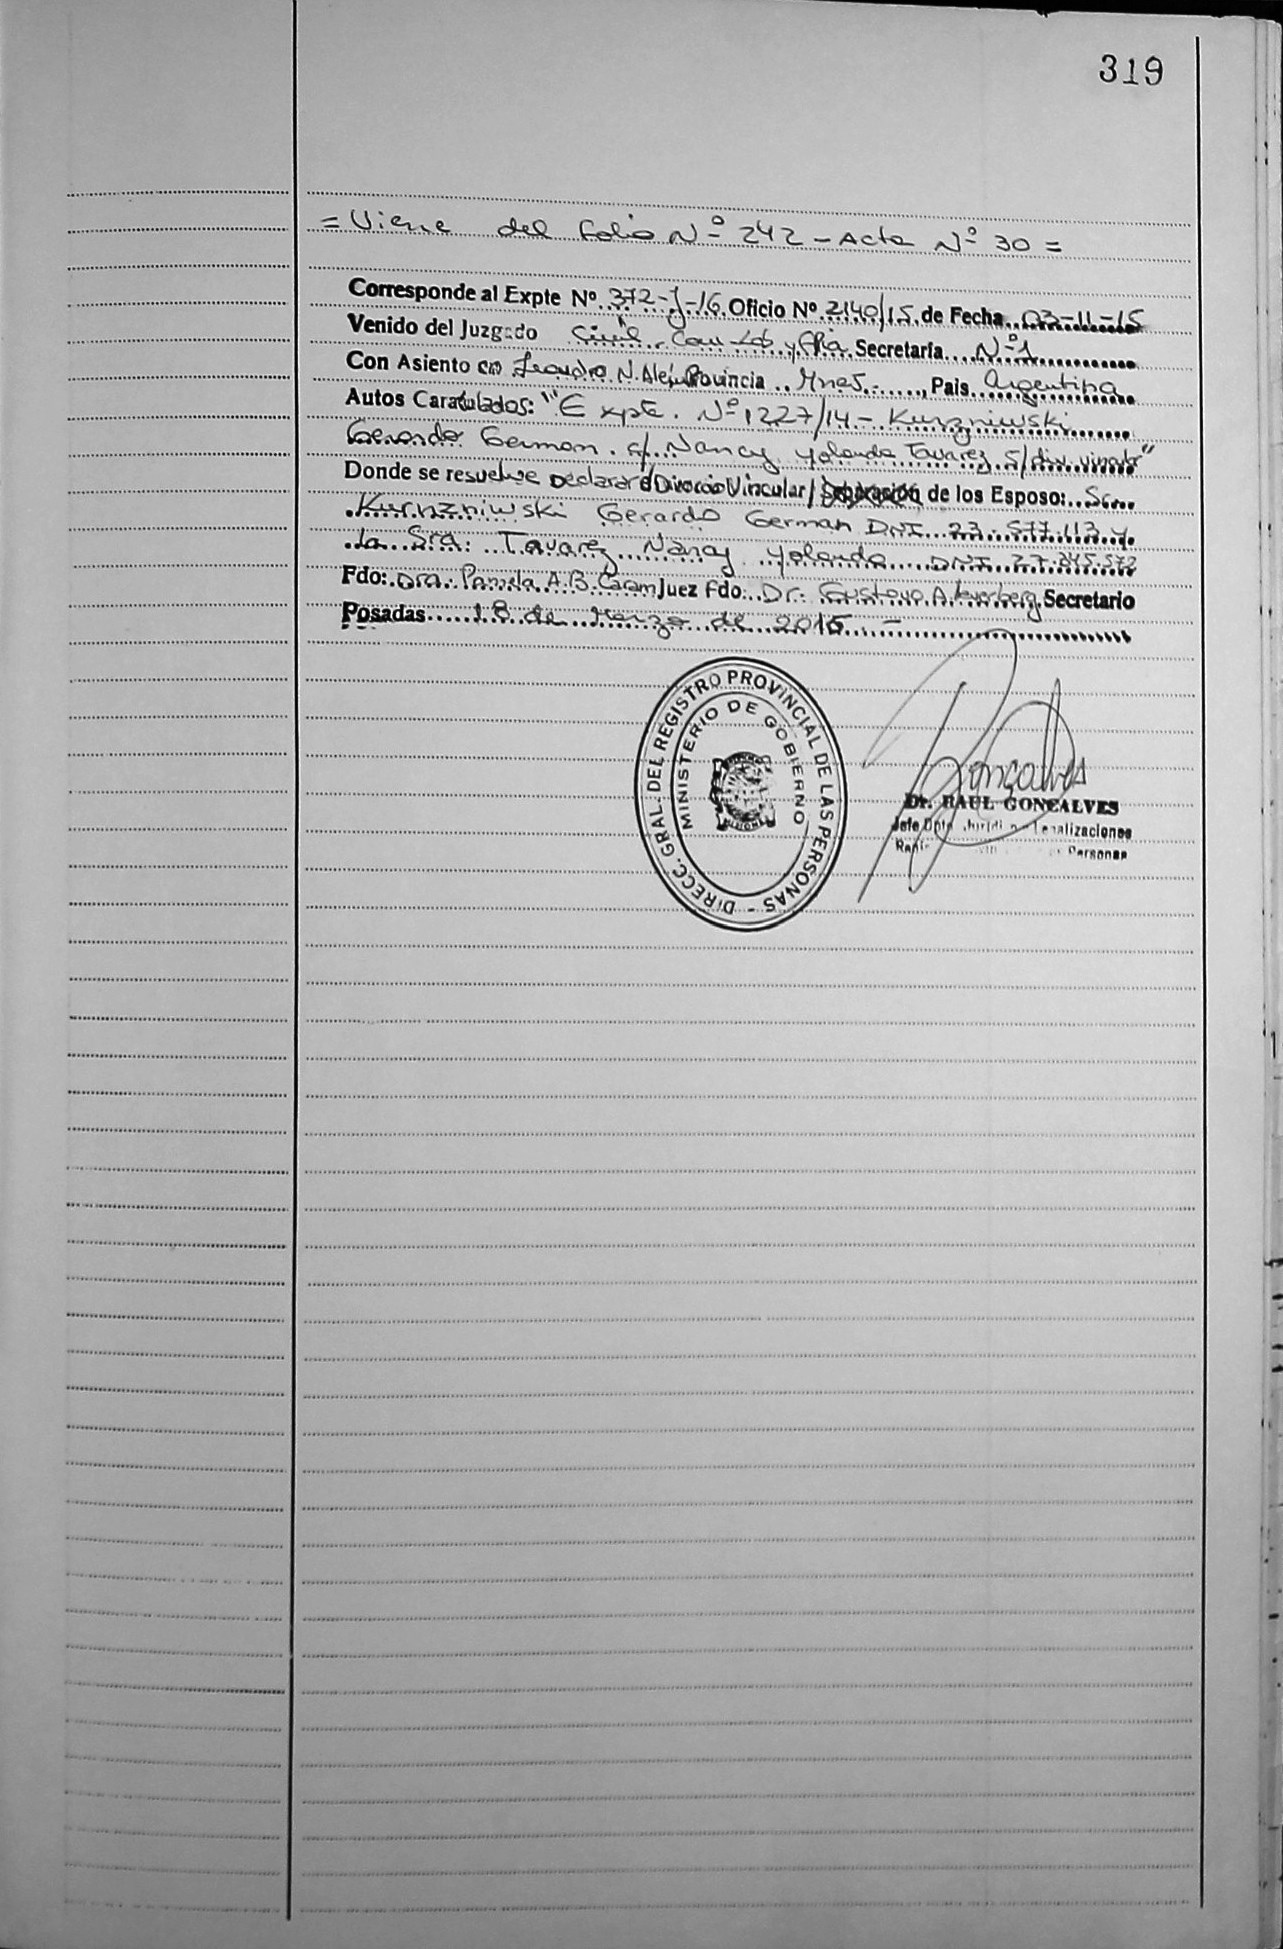 319
= Viene del folio Nº 242 - Acta Nº 30 =
Corresponde al Expte Nº 372-J-16 Oficio Nº 2140/15 de Fecha 03-11-15
Venido del Juzgado Civil Com Lab y Flia Secretaría Nº 1
Con Asiento en Leandro N. Alem Provincia Mnes. - , Pais Argentina
Autos Caratulados: "Expte. Nº 1227/14 - Kurszniwski
Gerardo German c/ Nancy Yolanda Tavarez S/ div. vinato"
Donde se resuelve Declarar el Divorcio Vincular / de los Esposo: Sr.
Kurnzniwski Gerardo German DNI 23.577.113 y
la Sra: Tavarez Nancy Yolanda DNI 27.845.572
Fdo: Dra. Pamela A.B. Caram Juez Fdo: Dr. Gustavo A. Secretario
Posadas 18 de Marzo de 2016 -
DIRECC. GRAL. DEL REGISTRO PROVINCIAL DE LAS PERSONAS -
MINISTERIO DE GOBIERNO
MISIONES
Gonçalves
Dr. RAUL GONCALVES
Jefe Dpto Legalizaciones
Personas